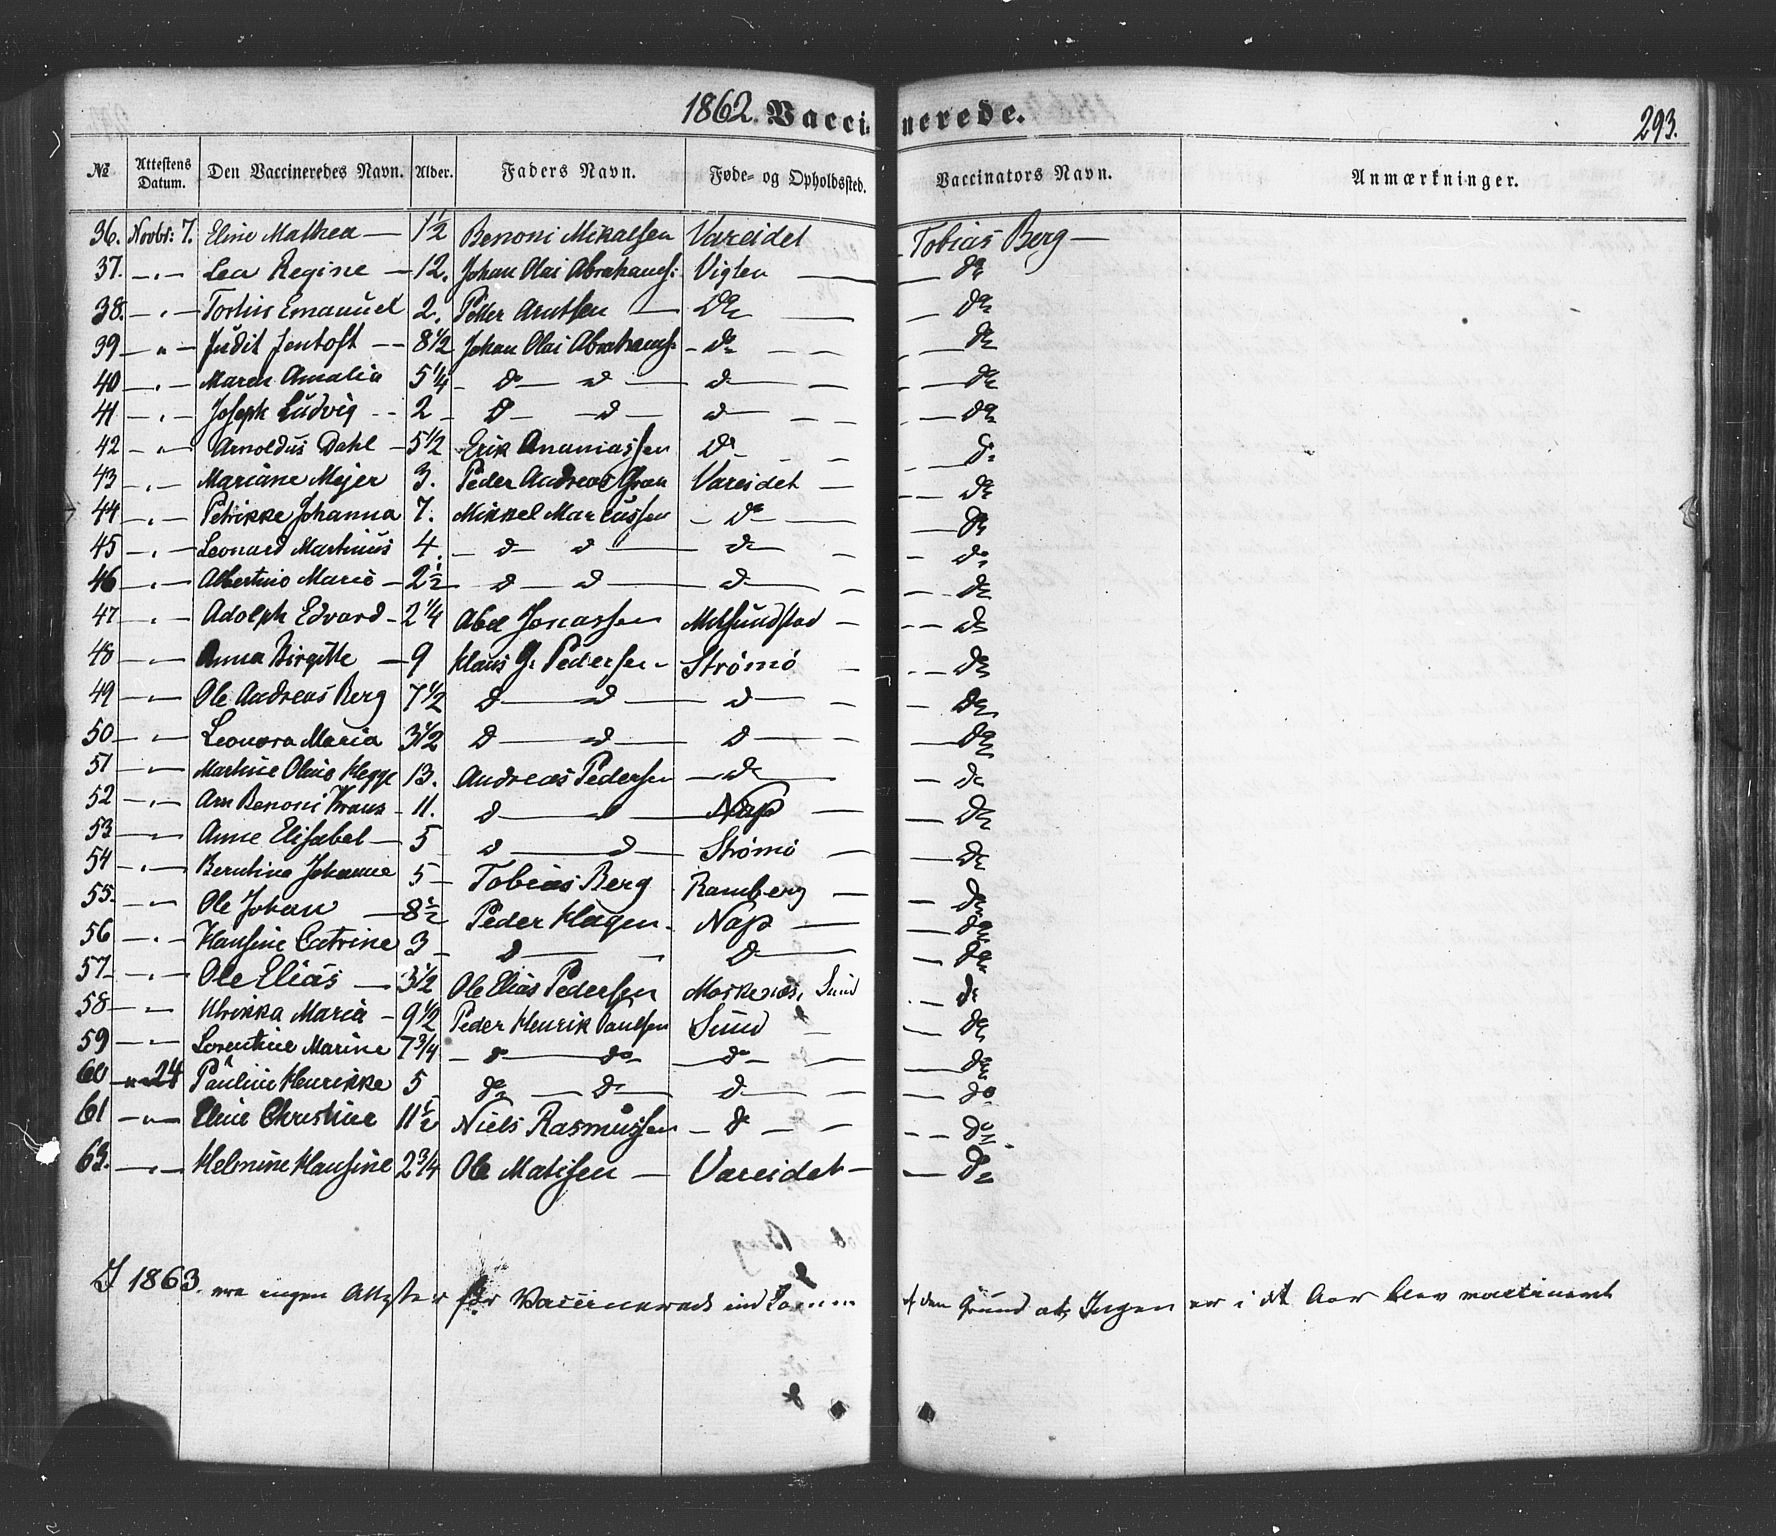 1862. Vaccinerede. 293.
№ Attestens Datum. Den Vaccineredes Navn. Alder. Faders Navn. Føde- og Opholdssted. Vaccinators Navn. Anmærkninger.
36. Novbr: 7. Eline Mathea — 1½ Benoni Mikalsen Vareidet Tobias Berg —
37. — " — Lea Regine — 12. Johan Olai Abrahams: Vigten — do
38. — " — Emanuel 2. Petter Arntsen — Do — do
39 — " — Judit Jentoft — 8½ Johan Olai Abrahams: - do - — do
40 — " — Maren Amalia 5¼ - D — D — D — — do
41 — " — Joseph Ludvig - - 2 - D — D — D — — do
42 — " — Arnoldus Dahl — 5½ Erik Ananiassen Do - — do
43 — " — Mariane Mejer 3. Peder Andreas Gran Vareidet — — do
44 — " — Petrikke Johanna 7. Mikkel Marcussen - Do — — do
45 — " — Leonard Martinus 4. - D D — D — — do
46 — " — Albertine Marie — 2½ — D — D — D — — do
47 — " — Adolph Edvard - 2¼ Abel Jonassen — - - — do
48 — " — Anna Birgitte — 9 Klaus G: Pedersen - Strømø — — do
49 — " — Ole Andreas Berg 7½ D — D — D — — do
50 — " — Leonora Maria 3½ D — D — D — — do
51 — " — Martine Oline Klegge 13. Andreas Pedersen — D — — do
52 — " — Arn Benoni - 11. D — D — Nap — — do
53 — " — Anne Elisabet — 5 D — D Strømø — — do
54 — " — Berntine Johanne 5 — Tobias Berg Ramberg — — do
55. — " — Ole Johan — 8½ Peder Hagen - Nap — — do
56 — " — Hansine Catrine 3 - D — " D — — do
57 — " — Ole Elias — 3½ Ole Elias Pedersen Moskenæs, Sund — do
58 — " — Ulrikka Maria - 9½ Peder Henrik Paulsen Sund — — do
59 — " — Lorentine Marine 7¾ - do — do — do — — do
60 — " 24 Pauline Henrikke 5 - do — D — D — — do
61 — " — Eline Christine 11½ Niels Rasmussen - D — — - - do
63. — " — Helmine Hansine 2¾ Ole Matisen — Vareidet — — do
I 1863. ere ingen Attester for Vaccinerede af den Grund at Ingen er i det Aar blev vaccineret